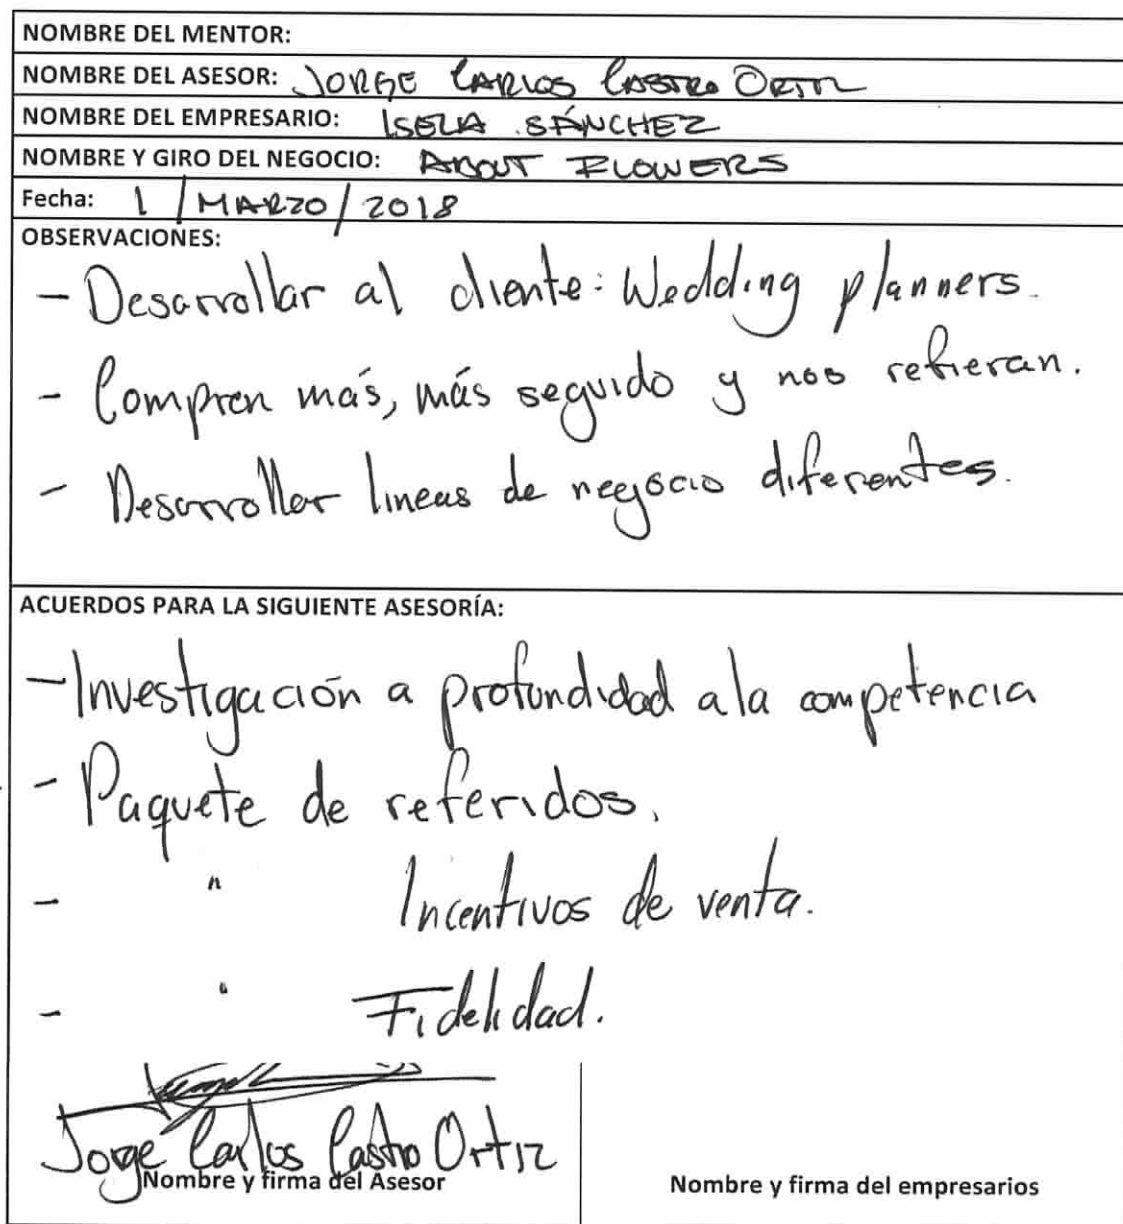 NOMBRE DEL MENTOR:
NOMBRE DEL ASESOR: JORGE CARLOS CASTRO ORTIZ
NOMBRE DEL EMPRESARIO: ISELA SÁNCHEZ
NOMBRE Y GIRO DEL NEGOCIO: ABOUT FLOWERS
Fecha: 1 / MARZO / 2018
OBSERVACIONES:
- Desarrollar al cliente: Wedding planners.
- Compren más, más seguido y nos refieran.
- Desarrollar lineas de negocio diferentes.
ACUERDOS PARA LA SIGUIENTE ASESORÍA:
- Investigación a profundidad a la competencia
- Paquete de referidos.
- " Incentivos de venta.
- " Fidelidad.
Jorge Carlos Castro Ortiz
Nombre y firma del Asesor
Nombre y firma del empresarios